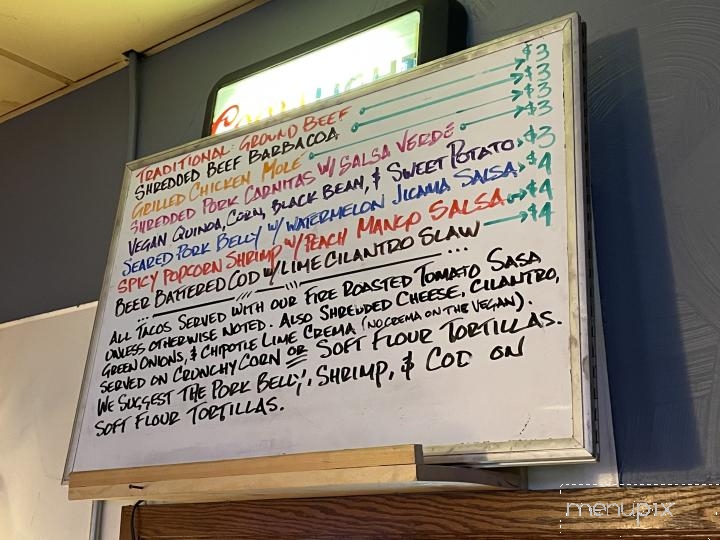 COORS LIGHT
TRADITIONAL: GROUND BEEF $3
SHREDDED BEEF BARBACOA $3
GRILLED CHICKEN MOLE $3
SHREDDED PORK CARNITAS W/ SALSA VERDE $3
VEGAN QUINOA, CORN, BLACK BEAN, & SWEET POTATO $3
SEARED PORK BELLY W/ WATERMELON JICAMA SALSA $4
SPICY POPCORN SHRIMP W/ PEACH MANGO SALSA $4
BEER BATTERED COD W/ LIME CILANTRO SLAW $4
ALL TACOS SERVED WITH OUR FIRE ROASTED TOMATO SASA
UNLESS OTHERWISE NOTED. ALSO SHREDDED CHEESE, CILANTRO,
GREEN ONIONS, & CHIPOTLE LIME CREMA (NO CREMA ON THE VEGAN).
SERVED ON CRUNCHY CORN OR SOFT FLOUR TORTILLAS.
WE SUGGEST THE PORK BELLY, SHRIMP, & COD ON
SOFT FLOUR TORTILLAS.
menupix